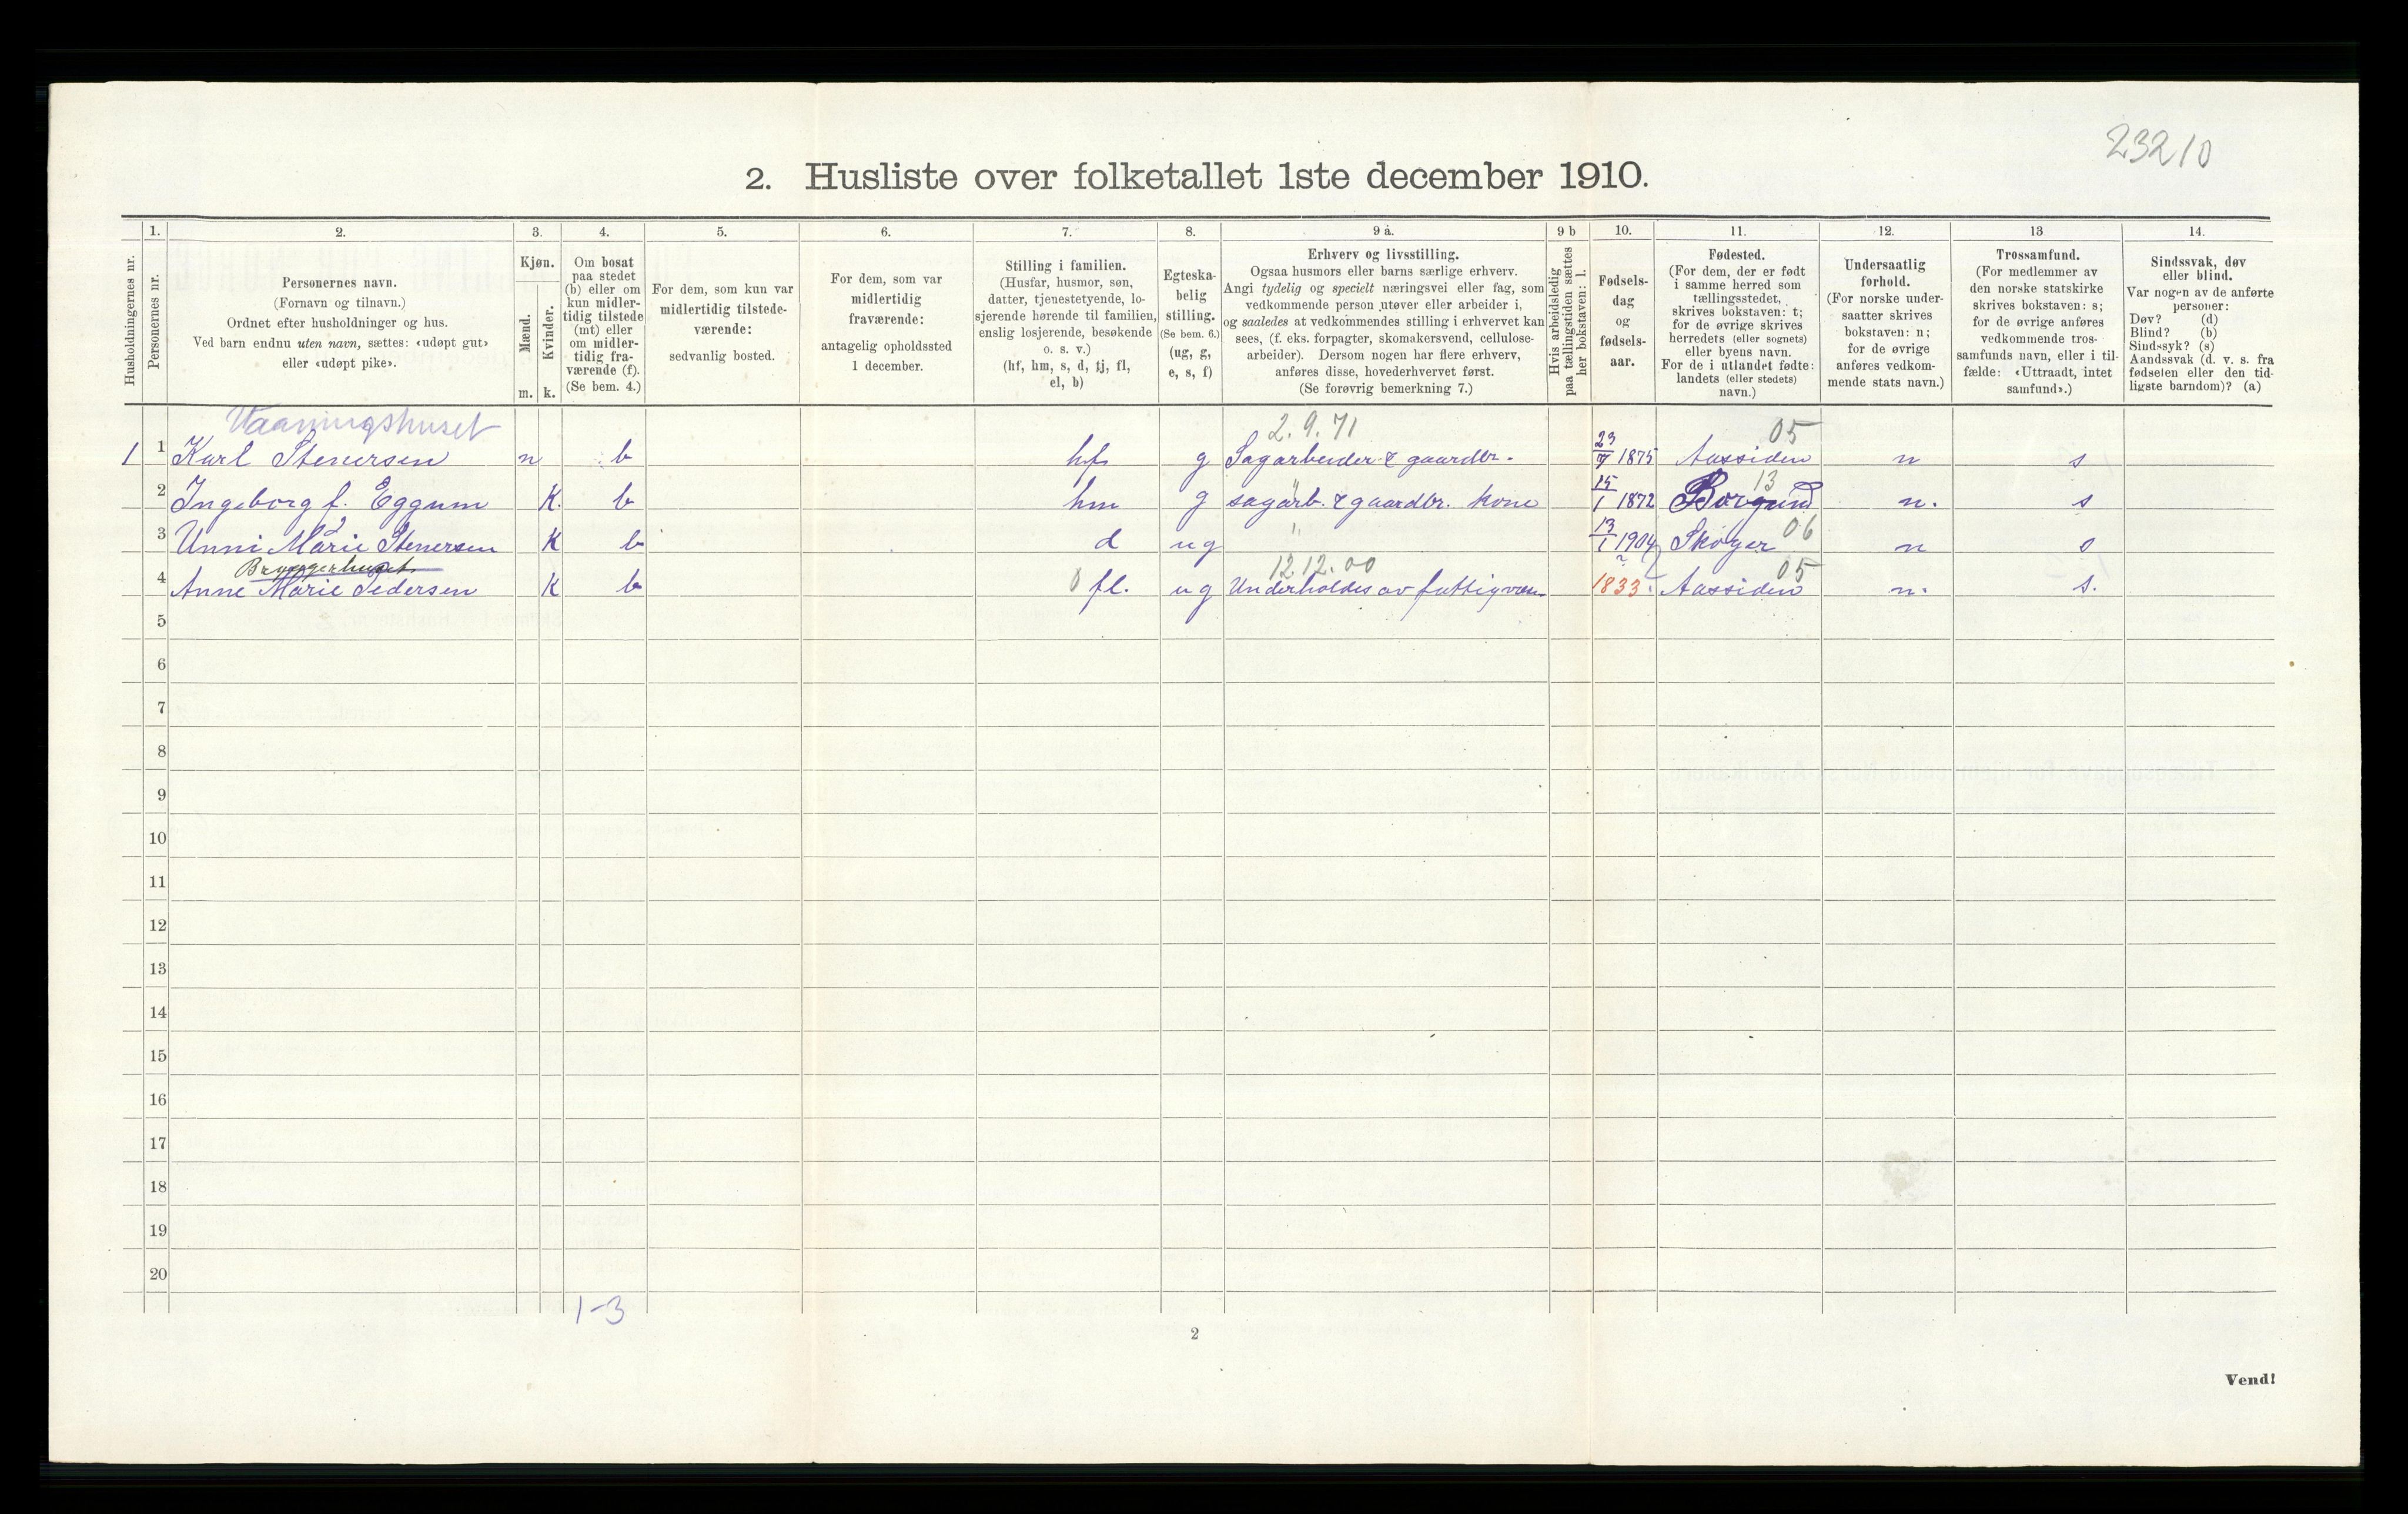 23210
2. Husliste over folketallet 1ste december 1910.
Husholdningernes nr.
1.
Personernes nr.
2.
Personernes navn.
(Fornavn og tilnavn.)
Ordnet efter husholdninger og hus.
Ved barn endnu uten navn, sættes: «udøpt gut»
eller «udøpt pike».
3.
Kjøn.
Mænd.
Kvinder.
m. k.
4.
Om bosat
paa stedet
(b) eller om
kun midler-
tidig tilstede
(mt) eller
om midler-
tidig fra-
værende (f).
(Se bem. 4.)
5.
For dem, som kun var
midlertidig tilstede-
værende:
sedvanlig bosted.
6.
For dem, som var
midlertidig
fraværende:
antagelig opholdssted
1 december.
7.
Stilling i familien.
(Husfar, husmor, søn,
datter, tjenestetyende, lo-
sjerende hørende til familien,
enslig losjerende, besøkende
o. s. v.)
(hf, hm, s, d, tj, fl,
el, b)
8.
Egteska-
belig
stilling.
(Se bem. 6.)
(ug, g,
e, s, f)
9 a.
Erhverv og livsstilling.
Ogsaa husmors eller barns særlige erhverv.
Angi tydelig og specielt næringsvei eller fag, som
vedkommende person utøver eller arbeider i,
og saaledes at vedkommendes stilling i erhvervet kan
sees, (f. eks. forpagter, skomakersvend, cellulose-
arbeider). Dersom nogen har flere erhverv,
anføres disse, hovederhvervet først.
(Se forøvrig bemerkning 7.)
9 b
Hvis arbeidsledig
paa tællingstiden sættes
her bokstaven: l.
10.
Fødsels-
dag
og
fødsels-
aar.
11.
Fødested.
(For dem, der er født
i samme herred som
tællingsstedet,
skrives bokstaven: t;
for de øvrige skrives
herredets (eller sognets)
eller byens navn.
For de i utlandet fødte:
landets (eller stedets)
navn.)
12.
Undersaatlig
forhold.
(For norske under-
saatter skrives
bokstaven: n;
for de øvrige
anføres vedkom-
mende stats navn.)
13
Trossamfund.
(For medlemmer av
den norske statskirke
skrives bokstaven: s;
for de øvrige anføres
vedkommende tros-
samfunds navn, eller i til-
fælde: «Uttraadt, intet
samfund».)
14.
Sindssvak, døv
eller blind.
Var nogen av de anførte
personer:
Døv? (d)
Blind? (b)
Sindssyk? (s)
Aandssvak (d. v. s. fra
fødselen eller den tid-
ligste barndom)? (a)
Vaaningshuset 2.9.71 05
1 1 Karl Stenersen n b hf g Sagarbeider & gaardbr. 23/7 1875 Aassiden n s
" 13
2 Ingeborg f. Eggum K. b hm g sagarb. & gaardbr. kone 15/1 1872 Borgund n. s
2 " 06
3 Unni Marie Stenersen K b d ug 13/1 1904 Skoger n s
Bryggerhuset 12.12.00 05
4 Anne Marie Pedersen K b 0 fl. ug Underholdes av fattigvæs. 1833 Aassiden n. s.
5
6
7
8
9
10
11
12
13
14
15
16
17
18
19
20
1-3
2
Vend!